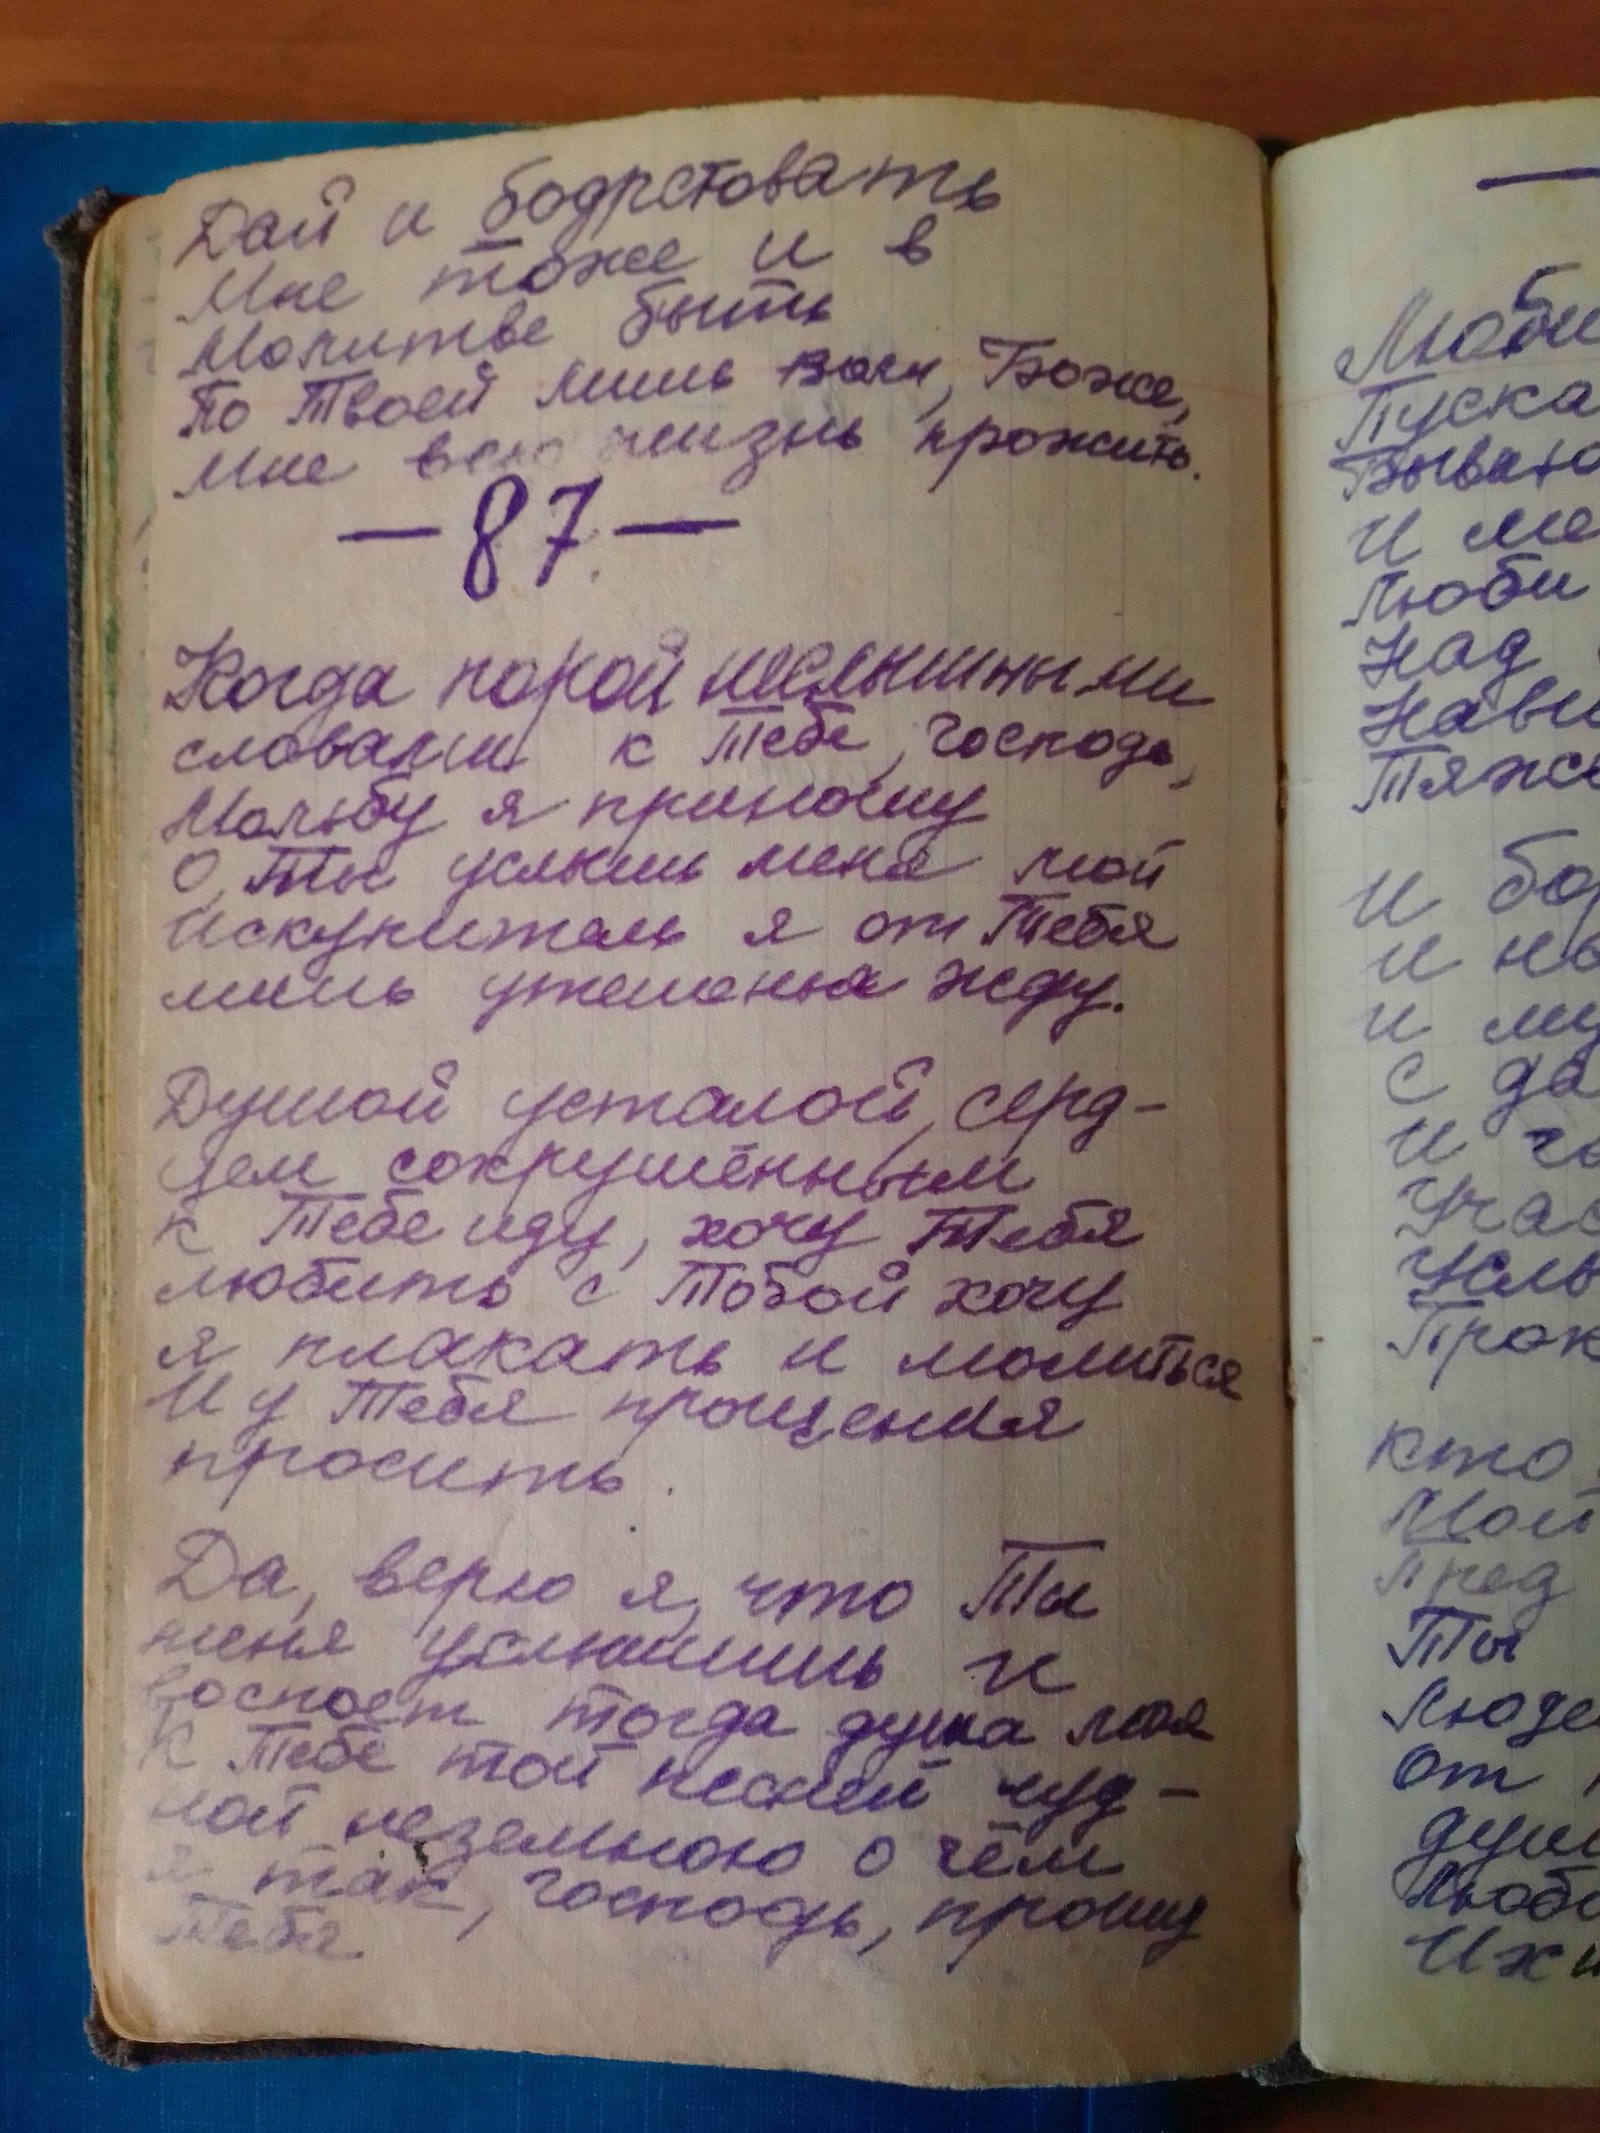 Дай и бодрстовать
Мне тоже и в
Молитве быть
По Твоей лишь воли, Боже,
Мне всю жизнь прожить.
— 87 —
Когда порой неслышными
словами к Тебе, Господь,
Мольбу я приношу
О, Ты услышь меня мой
Искупитель я от Тебя
лишь утешенья жду.
Душой усталой, серд-
цем сокрушённым
к Тебе иду, хочу Тебя
любить с Тобой хочу
я плакать и молиться
И у Тебя прощения
просить.
Да, верю я, что Ты
меня услышишь и
воспоет тогда душа моя
К Тебе той песней чуд-
ной неземною о чём
я так, Господь, прошу
Тебя
Люби
Пуска
Бываю
и ме
Люби
Над
Навс
Тяже
и бо
и не
и му
с да
и
Учас
Услы
Прок
кто
Мой
пред
Ты
Людe
От
душ
Любо
Их